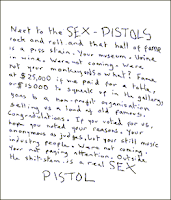 Next to the SEX-PISTOLS
rock and roll and that hall of fame
is a piss stain. Your museum. Urine
in wine. Were not coming. Were
not your monkeys and so what? Fame
at $25,000 if we paid for a table,
or $15000 to squeak up in the gallery,
goes to a non-profit organisation
selling us a load of old famous.
Congratulations. If you voted for us,
hope you noted your reasons. Your
anonymous as judges, but your still music
industry people. Were not coming.
Your not paying attention. Outside
the shit-stem is a real SEX
PISTOL